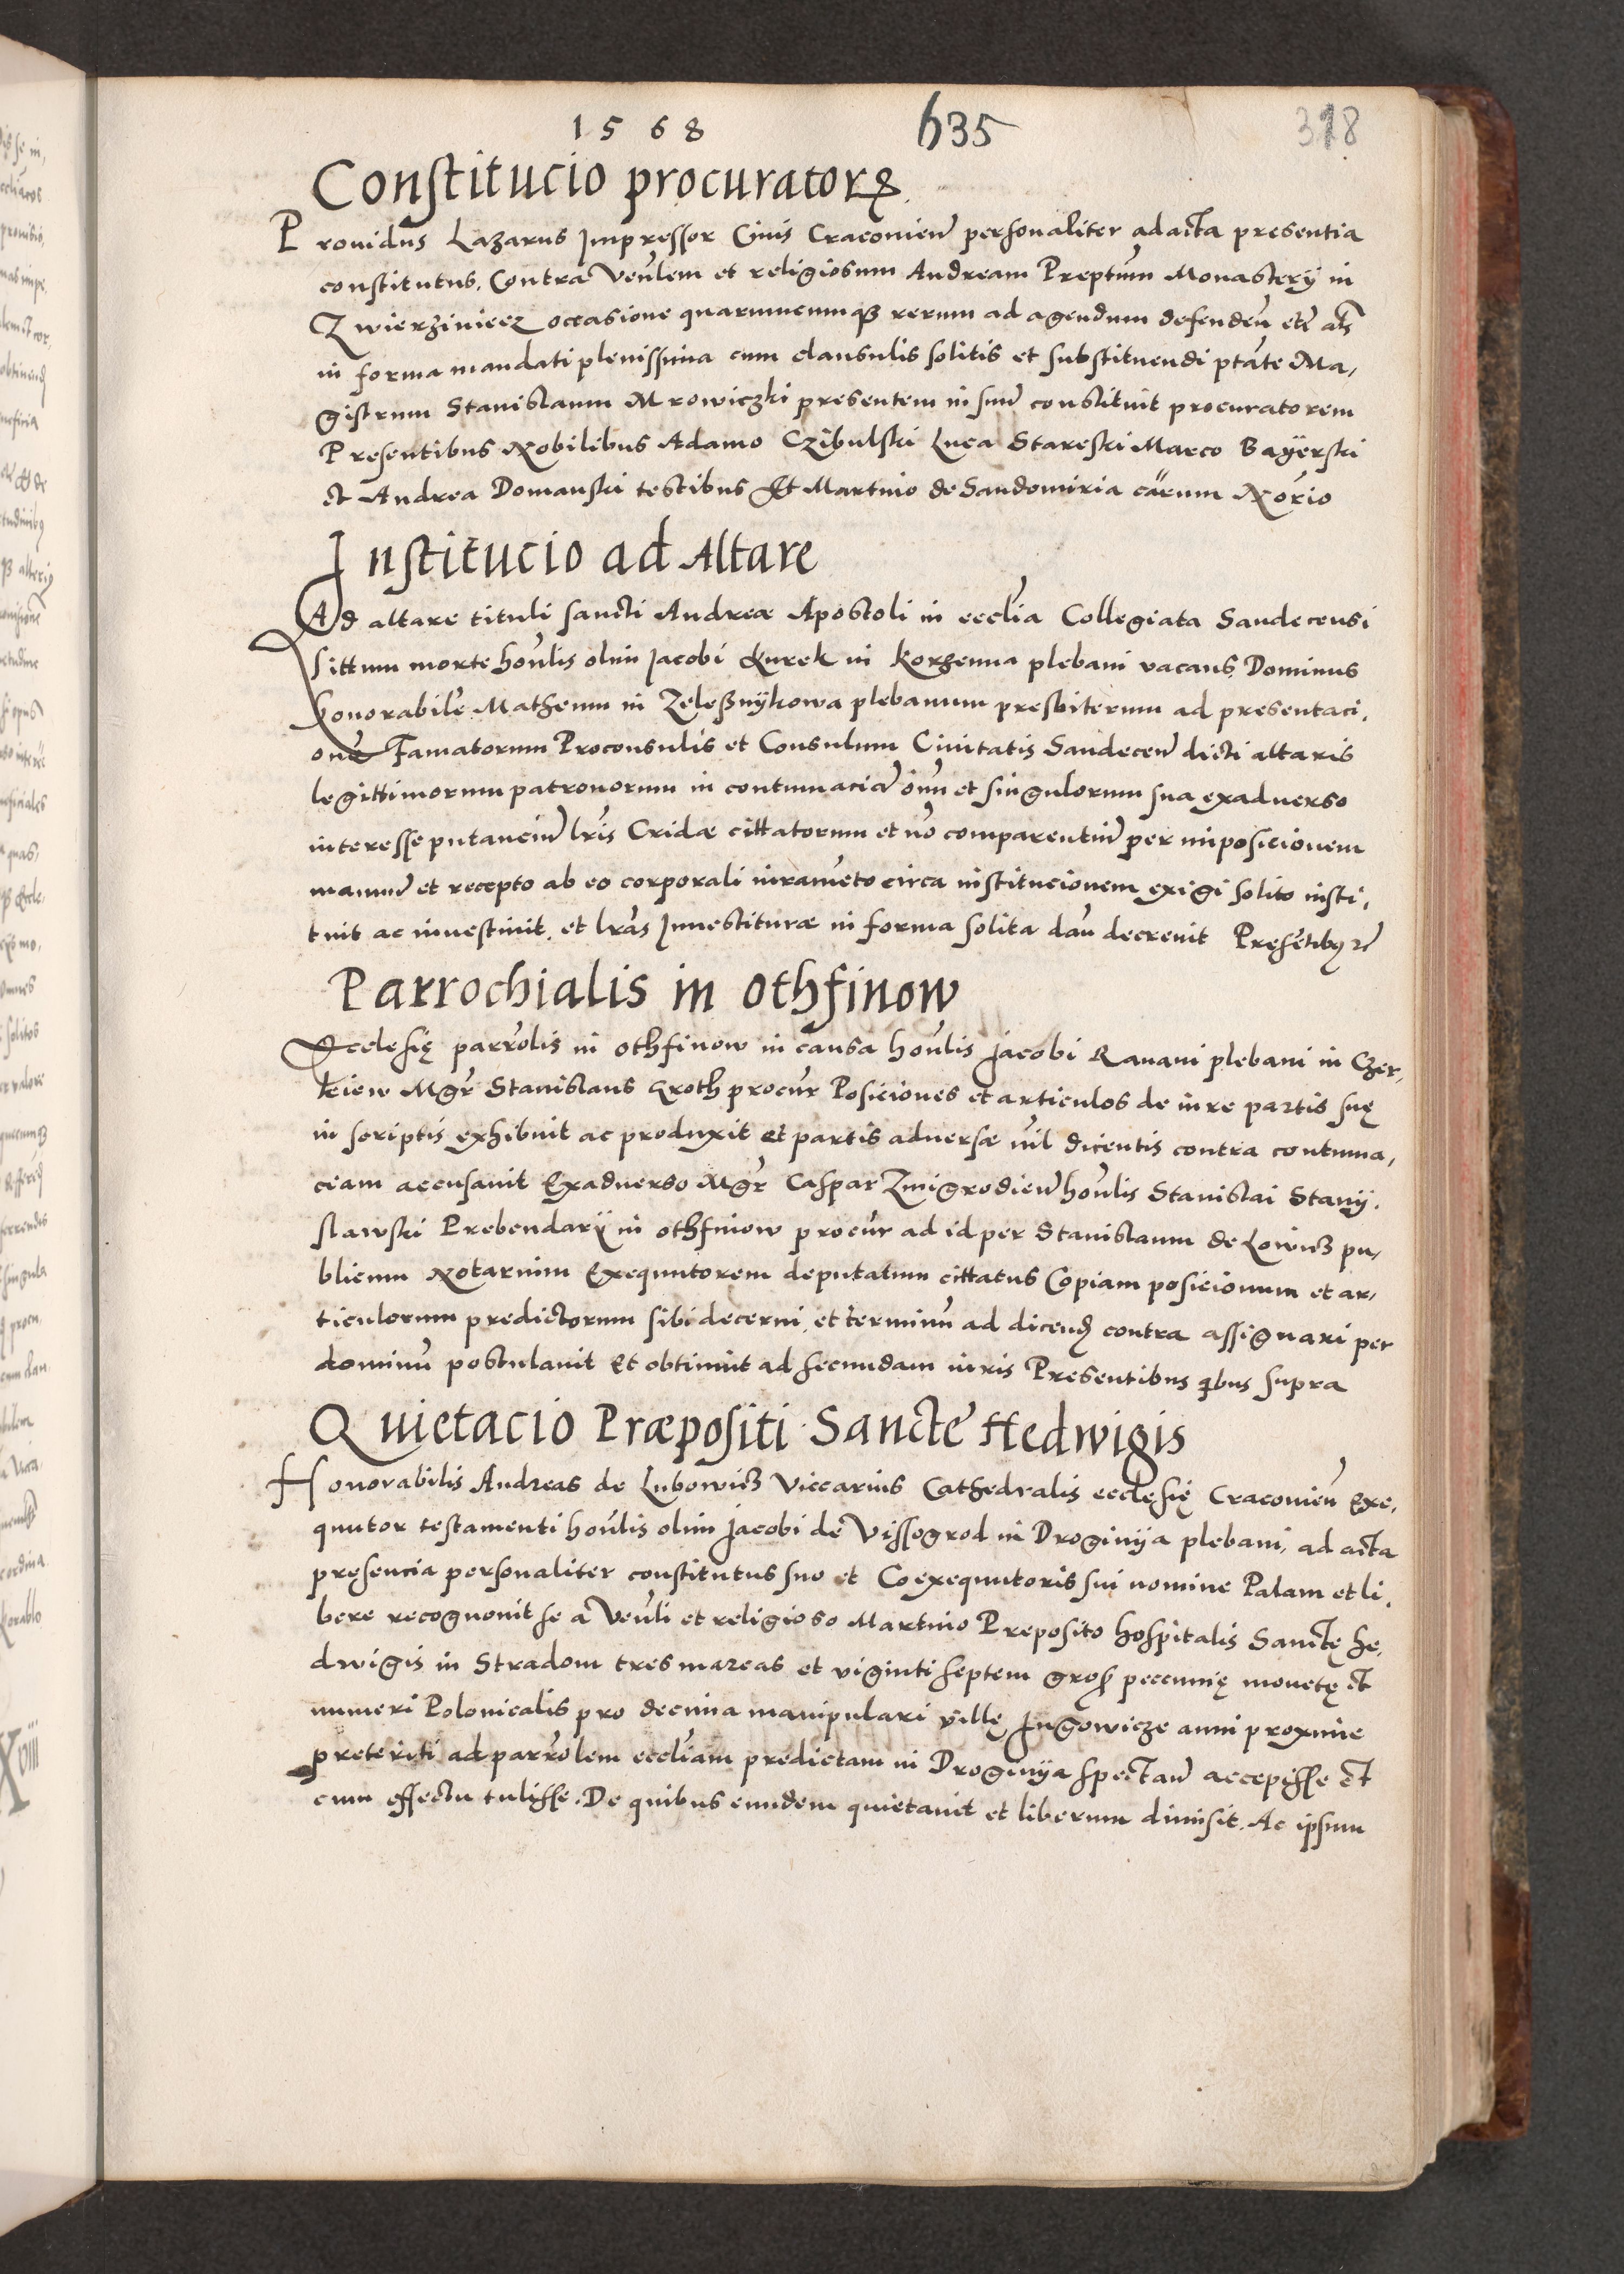 1568 635 318
Constitucio procuratorꝝ
Prouidus Lazarus Impressor Ciuis Cracouien̄ personaliter ad acta presentia
constitutus. Contra Ven̄lem et religiosum Andream Prept̄um Monasterÿ in
Zwierziniecz occasione quarumcumqꝫ rerum ad agendum defendeñ etc̄ al̄s
in forma mandati plenissima cum clausulis solitis et substituendi ptāte Ma,
gistrum Stanislaum Mrowiczki presentem in sum̄ constituit procuratorem
Presentibus Nobilibus Adamo Czibulski Luca Stareski Marco Bayerski
et Andrea Domanski testibus Et Martino de Sandomiria cārum Nōrio
Institucio ad Altare
Ad altare tituli sancti Andreæ Apostoli in eccl̄ia Collegiata Sandecensi
sittum morte hon̄lis olim Jacobi Kurek in Korzenna plebani vacans Dominus
honorabilē Matheum in Zeleßnÿkowa plebanum presbiterum ad presentaci,
onē Famatorum Proconsulis et Consulum Ciuitatis Sandecen̄ dicti altaris
legittimorum patronorum in contumaciā om̄ et singulorum sua exaduerso
interesse putanciū lr̄is Cridæ cittatorum et nō comparentiū per imposicionem
manuū et recepto ab eo corporali iuramēto circa institucionem exigi solito insti,
tuit ac inuestiuit. et lr̄as Inuestituræ in forma solita dan̄ decreuit Presētibꝰ ꝛc̄
Parrochialis in Othfinow
Ecclesię parrōlis in Othfinow in causa hon̄lis Jacobi Rauani plebani in Czer,
kiew Mgr̄ Stanislaus Groth procur̄ Posiciones et articulos de iure partis suę
in scriptis exhibuit ac produxit et partis aduersæ nil dicentis contra contuma,
ciam accusauit Exaduerso Mgr̄ Caspar Zmigrodien̄ hon̄lis Stanislai Stanÿ,
slawski Prebendarÿ in Othfinow procur̄ ad id per Stanislaum de Lowicz pu,
blicum Notarium Exequutorem deputatum cittatus Copiam posicionum et ar,
ticulorum predictorum sibi decerni, et terminū ad dicend̄ contra assignari per
dominū postulauit Et obtinuit ad secundam iuris Presentibus qibus supra
Quietacio Præpositi Sancte Hedwigis
Honorabilis Andreas de Lubowicz Viccarius Cathedralis ecclesię Cracouien̄ Exe,
quutor testamenti hon̄lis olim Jacobi de Vissogrod in Droginÿa plebani, ad acta
pręsencia personaliter constitutus suo et Coexequutoris sui nomine Palam et li,
bere recognouit se a Ven̄li et religioso Martino Preposito hospitalis Sanctę he,
dwigis in Stradom tres marcas et viginti septem gros̄ peccunię monetę et
numeri Polonicalis pro decima manipulari villę Jugowicze anni proxime
preteriti ad parrōlem eccl̄iam predictam in Droginÿa spectan̄ accepisse et
cum effectu tulisse. De quibus eundem quietauit et liberum dimisit. Ac ipsum